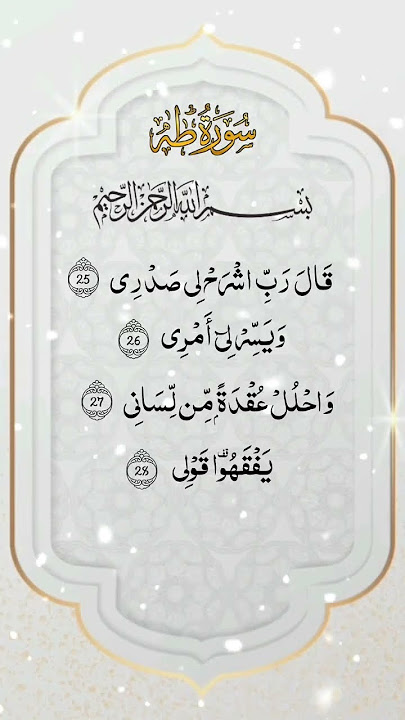 سُورَةُ طٰهٰ
بِسْمِ اللهِ الرَّحْمٰنِ الرَّحِيْمِ
قَالَ رَبِّ اشْرَحْ لِى صَدْرِى 25
وَيَسِّرْ لِىٓ اَمْرِى 26
وَاحْلُلْ عُقْدَةً مِّن لِّسَانِى 27
يَفْقَهُوْا قَوْلِى 28